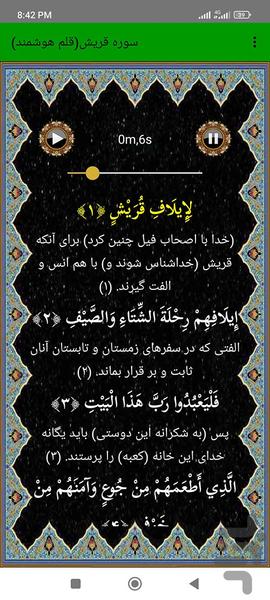 8:42 PM
4G
59
سوره قریش(قلم هوشمند)
0m,6s
لِإِيلَافِ قُرَيْشٍ ﴿۱﴾
(خدا با اصحاب فیل چنین کرد) برای آنکه
قریش (خداشناس شوند و) با هم انس و
الفت گیرند. (۱)
إِيلَافِهِمْ رِحْلَةَ الشِّتَاءِ وَالصَّيْفِ ﴿۲﴾
الفتی که در سفرهای زمستان و تابستان آنان
ثابت و بر قرار بماند. (۲)
فَلْيَعْبُدُوا رَبَّ هَذَا الْبَيْتِ ﴿۳﴾
پس (به شکرانه این دوستی) باید یگانه
خدای این خانه (کعبه) را پرستند. (۳)
الَّذِي أَطْعَمَهُمْ مِنْ جُوعٍ وَآمَنَهُمْ مِنْ
خَوْفٍ ﴿۴﴾